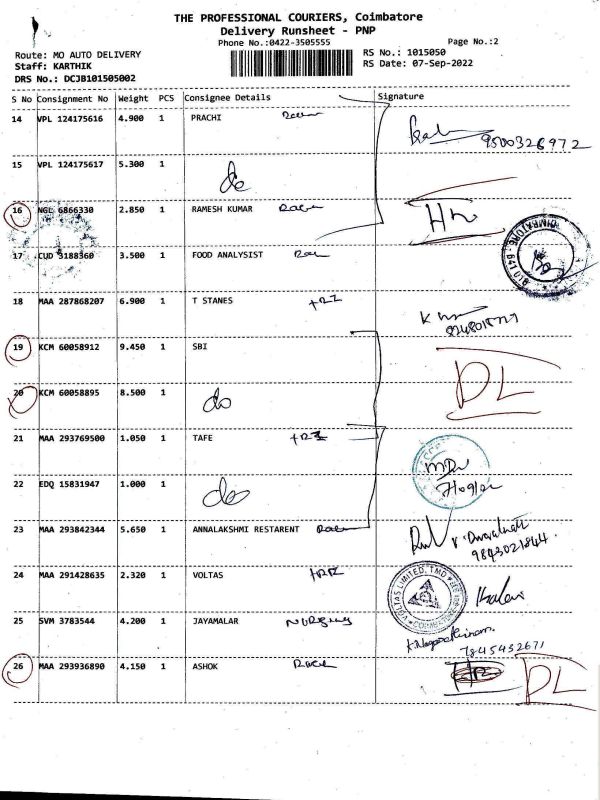 THE PROFESSIONAL COURIERS, Coimbatore
Delivery Runsheet - PNP
Phone No.:0422-3505555
Page No.:2
Route: MO AUTO DELIVERY
RS No.: 1015050
Staff: KARTHIK
RS Date: 07-Sep-2022
DRS No.: DCJB101505002
S No Consignment No Weight PCS Consignee Details Signature
14 VPL 124175616 4.900 1 PRACHI
9500326972
15 VPL 124175617 5.300 1
do
16 NGL 6866330 2.850 1 RAMESH KUMAR
17 CUD 3188360 3.500 1 FOOD ANALYSIST
18 MAA 287868207 6.900 1 T STANES
19 KCM 60058912 9.450 1 SBI
DL
20 KCM 60058895 8.500 1
do
21 MAA 293769500 1.050 1 TAFE
22 EDQ 15831947 1.000 1
do
23 MAA 293842344 5.650 1 ANNALAKSHMI RESTARENT
9843021844
24 MAA 291428635 2.320 1 VOLTAS
VOLTAS LIMITED, TMD
25 SVM 3783544 4.200 1 JAYAMALAR
7845452671
26 MAA 293936890 4.150 1 ASHOK
DL